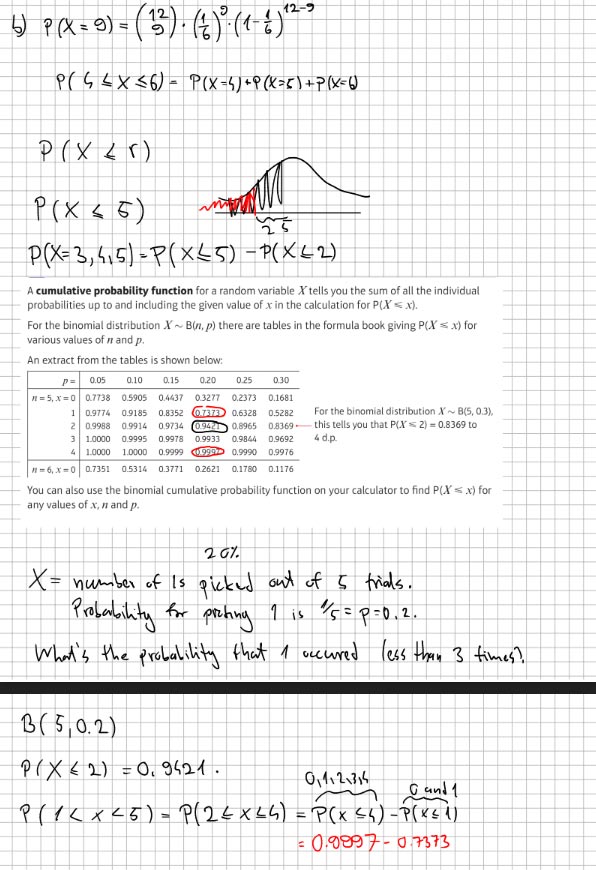 b) P(X=9) = (12 9) · (1/6)^9 · (1-1/6)^12-9
P(4 ≤ X ≤ 6) = P(X=4)+P(X=5)+P(X=6)
P(X ≤ r)
P(X ≤ 5)
2 5
P(X=3,4,5) = P(X≤5) - P(X≤2)
A cumulative probability function for a random variable X tells you the sum of all the individual
probabilities up to and including the given value of x in the calculation for P(X ≤ x).
For the binomial distribution X ~ B(n, p) there are tables in the formula book giving P(X ≤ x) for
various values of n and p.
An extract from the tables is shown below:
p = 0.05 0.10 0.15 0.20 0.25 0.30
n = 5, x = 0 0.7738 0.5905 0.4437 0.3277 0.2373 0.1681
1 0.9774 0.9185 0.8352 0.7373 0.6328 0.5282
2 0.9988 0.9914 0.9734 0.9421 0.8965 0.8369
3 1.0000 0.9995 0.9978 0.9933 0.9844 0.9692
4 1.0000 1.0000 0.9999 0.9997 0.9990 0.9976
n = 6, x = 0 0.7351 0.5314 0.3771 0.2621 0.1780 0.1176
For the binomial distribution X ~ B(5, 0.3),
this tells you that P(X ≤ 2) = 0.8369 to
4 d.p.
You can also use the binomial cumulative probability function on your calculator to find P(X ≤ x) for
any values of x, n and p.
20%
X = number of 1s picked out of 5 trials.
Probability for picking 1 is 1/5 = p=0.2.
What's the probability that 1 occured less than 3 times?
B(5,0.2)
P(X ≤ 2) = 0.9421.
0,1,2,3,4
0 and 1
P(1 < x < 5) = P(2 ≤ x ≤ 4) = P(x ≤ 4) - P(x ≤ 1)
= 0.9997 - 0.7373